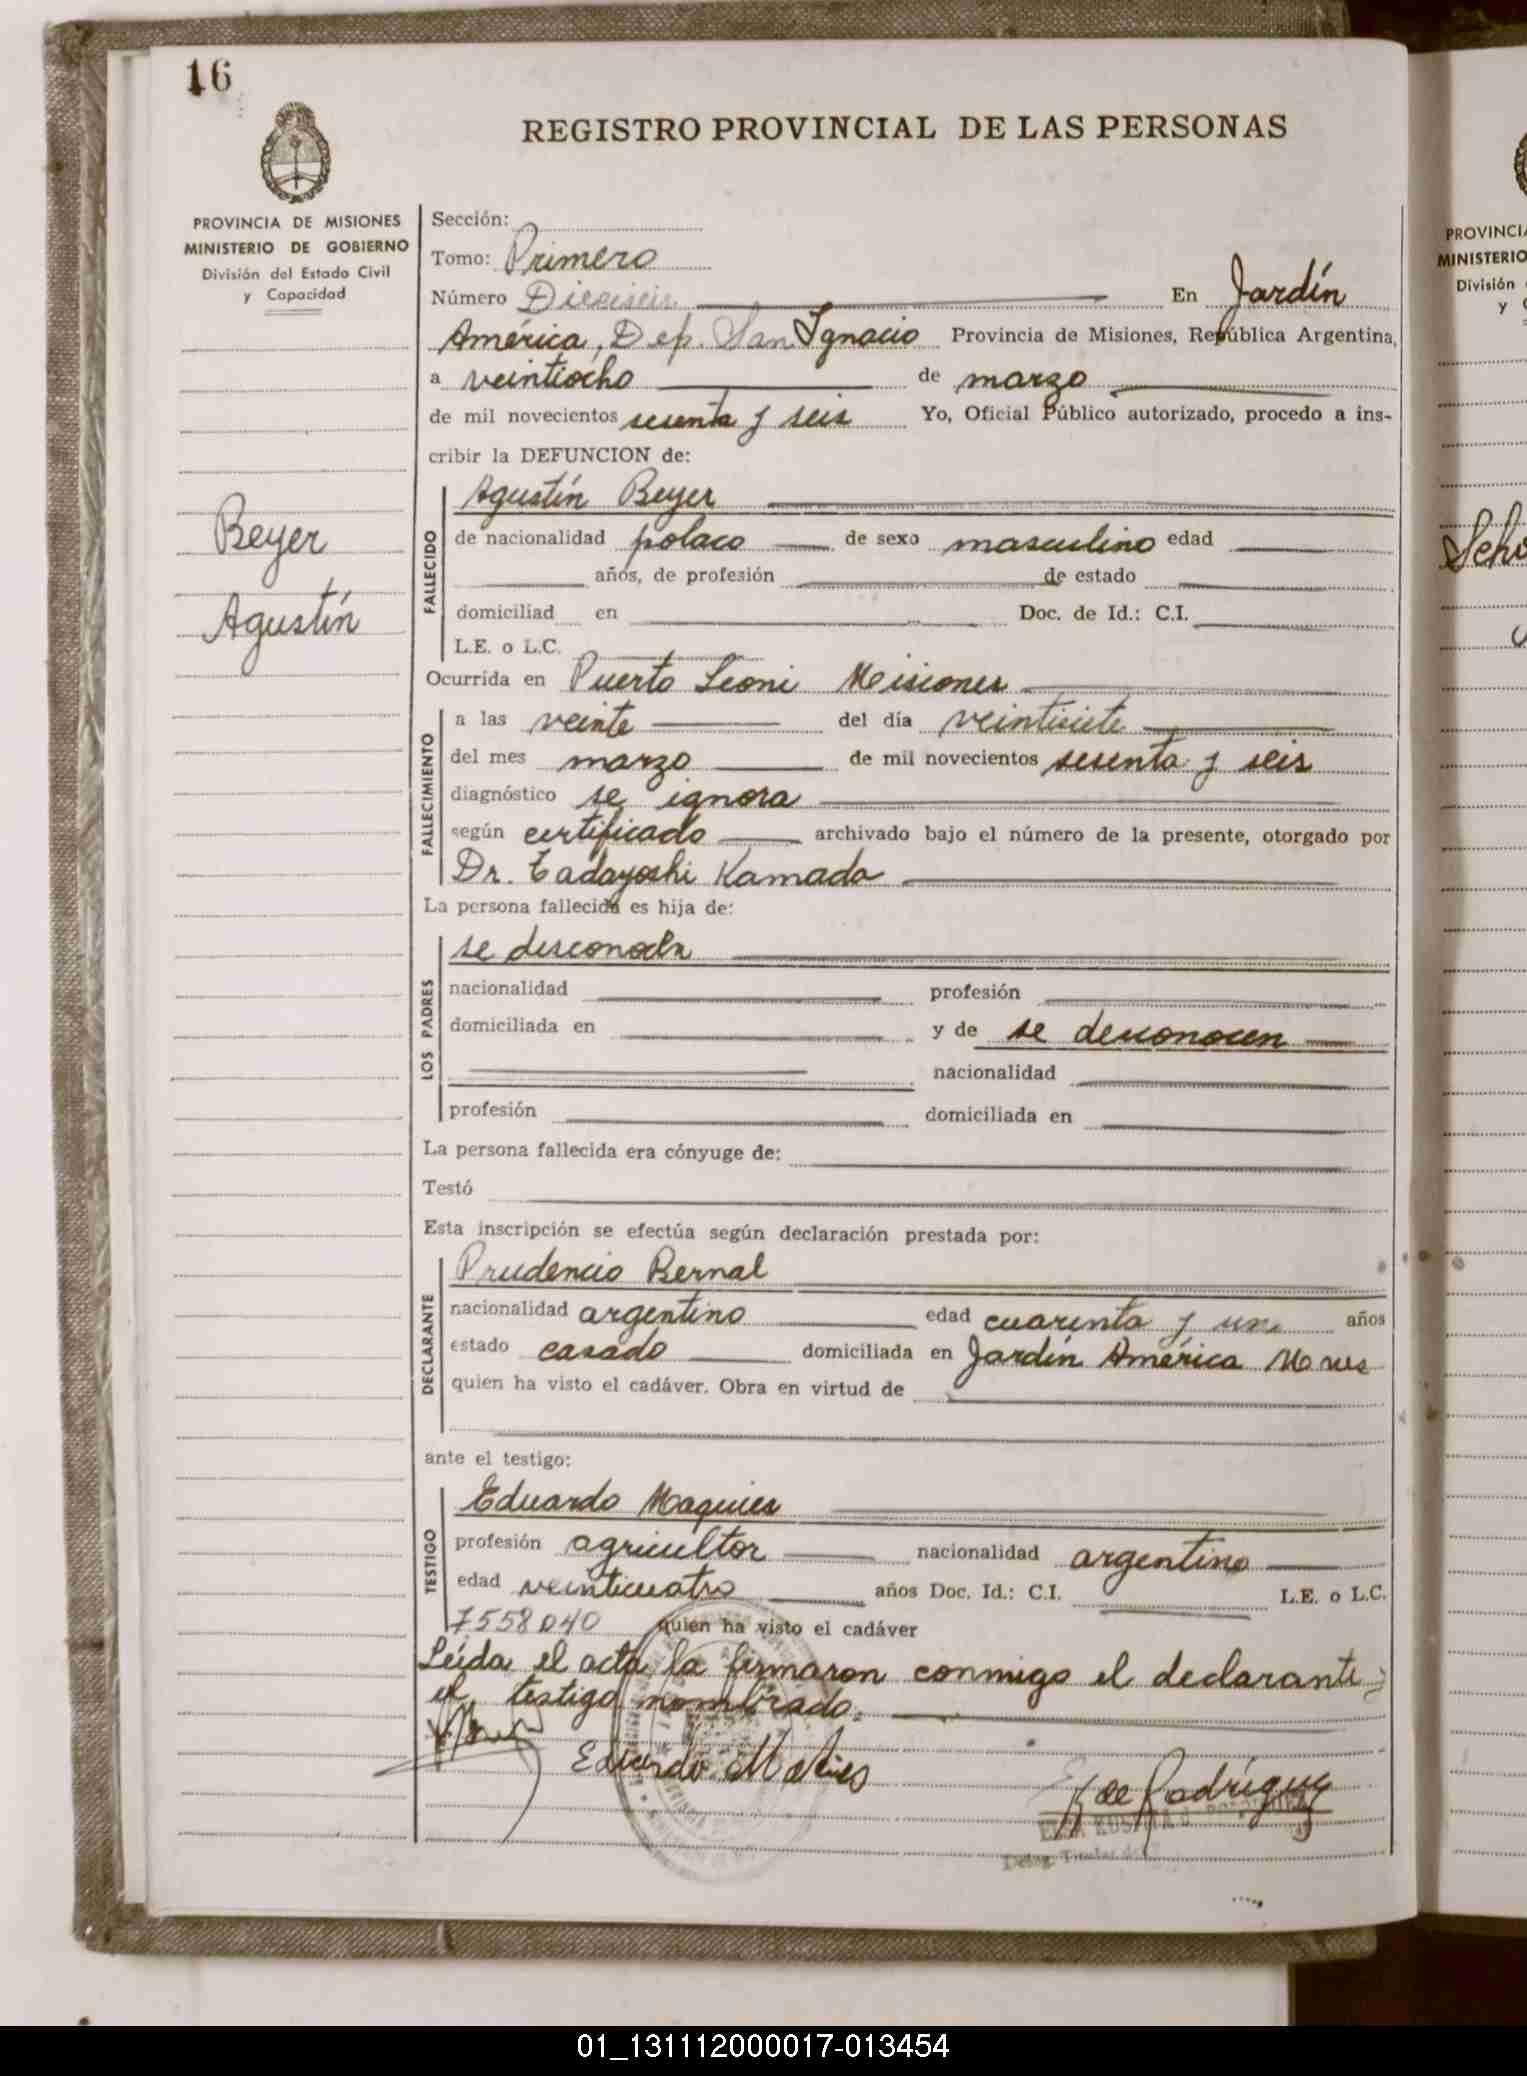 16
REGISTRO PROVINCIAL DE LAS PERSONAS
PROVINCIA DE MISIONES
MINISTERIO DE GOBIERNO
División del Estado Civil
y Capacidad
Sección:
Tomo: Primero
Número Dieciseis En Jardín
América, Dep. San Ignacio Provincia de Misiones, República Argentina,
a veintiocho de marzo
de mil novecientos sesenta y seis Yo, Oficial Público autorizado, procedo a ins-
cribir la DEFUNCION de:
Beyer
Agustín
FALLECIDO
Agustín Beyer
de nacionalidad polaco de sexo masculino edad
años, de profesión de estado
domiciliad en Doc. de Id.: C.I.
L.E. o L.C.
Ocurrida en Puerto Leoni Misiones
FALLECIMIENTO
a las veinte del día veintisiete
del mes marzo de mil novecientos sesenta y seis
diagnóstico se ignora
según certificado archivado bajo el número de la presente, otorgado por
Dr. Tadayoshi Kamada
La persona fallecida es hija de:
LOS PADRES
se desconocen
nacionalidad profesión
domiciliada en y de se desconocen
nacionalidad
profesión domiciliada en
La persona fallecida era cónyuge de:
Testó
Esta inscripción se efectúa según declaración prestada por:
DECLARANTE
Prudencio Bernal
nacionalidad argentino edad cuarenta y un años
estado casado domiciliada en Jardín América
quien ha visto el cadáver. Obra en virtud de
ante el testigo:
TESTIGO
Eduardo Maquies
profesión agricultor nacionalidad argentino
edad veinticuatro años Doc. Id.: C.I. L.E. o L.C.
7558040 quien ha visto el cadáver
Leída el acta la firmaron conmigo el declarante y
el testigo nombrado.
Eduardo
de Rodríguez
PROVINCIA
MINISTERIO
División
y
01_131112000017-013454